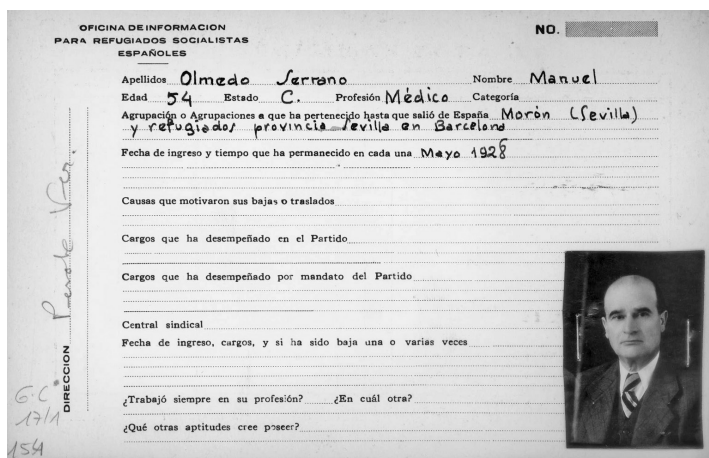 OFICINA DE INFORMACION
PARA REFUGIADOS SOCIALISTAS
ESPAÑOLES
NO.
Apellidos Olmedo Serrano Nombre Manuel
Edad 54 Estado C. Profesión Médico Categoría
Agrupación o Agrupaciones a que ha pertenecido hasta que salió de España Morón (Sevilla)
y refugiados provincia Sevilla en Barcelona
Fecha de ingreso y tiempo que ha permanecido en cada una Mayo 1928
Causas que motivaron sus bajas o traslados
Cargos que ha desempeñado en el Partido
Cargos que ha desempeñado por mandato del Partido
Central sindical
Fecha de ingreso, cargos, y si ha sido baja una o varias veces
¿Trabajó siempre en su profesión? ¿En cuál otra?
¿Qué otras aptitudes cree poseer?
DIRECCION Perote Ver.
G.C.
17/1
154